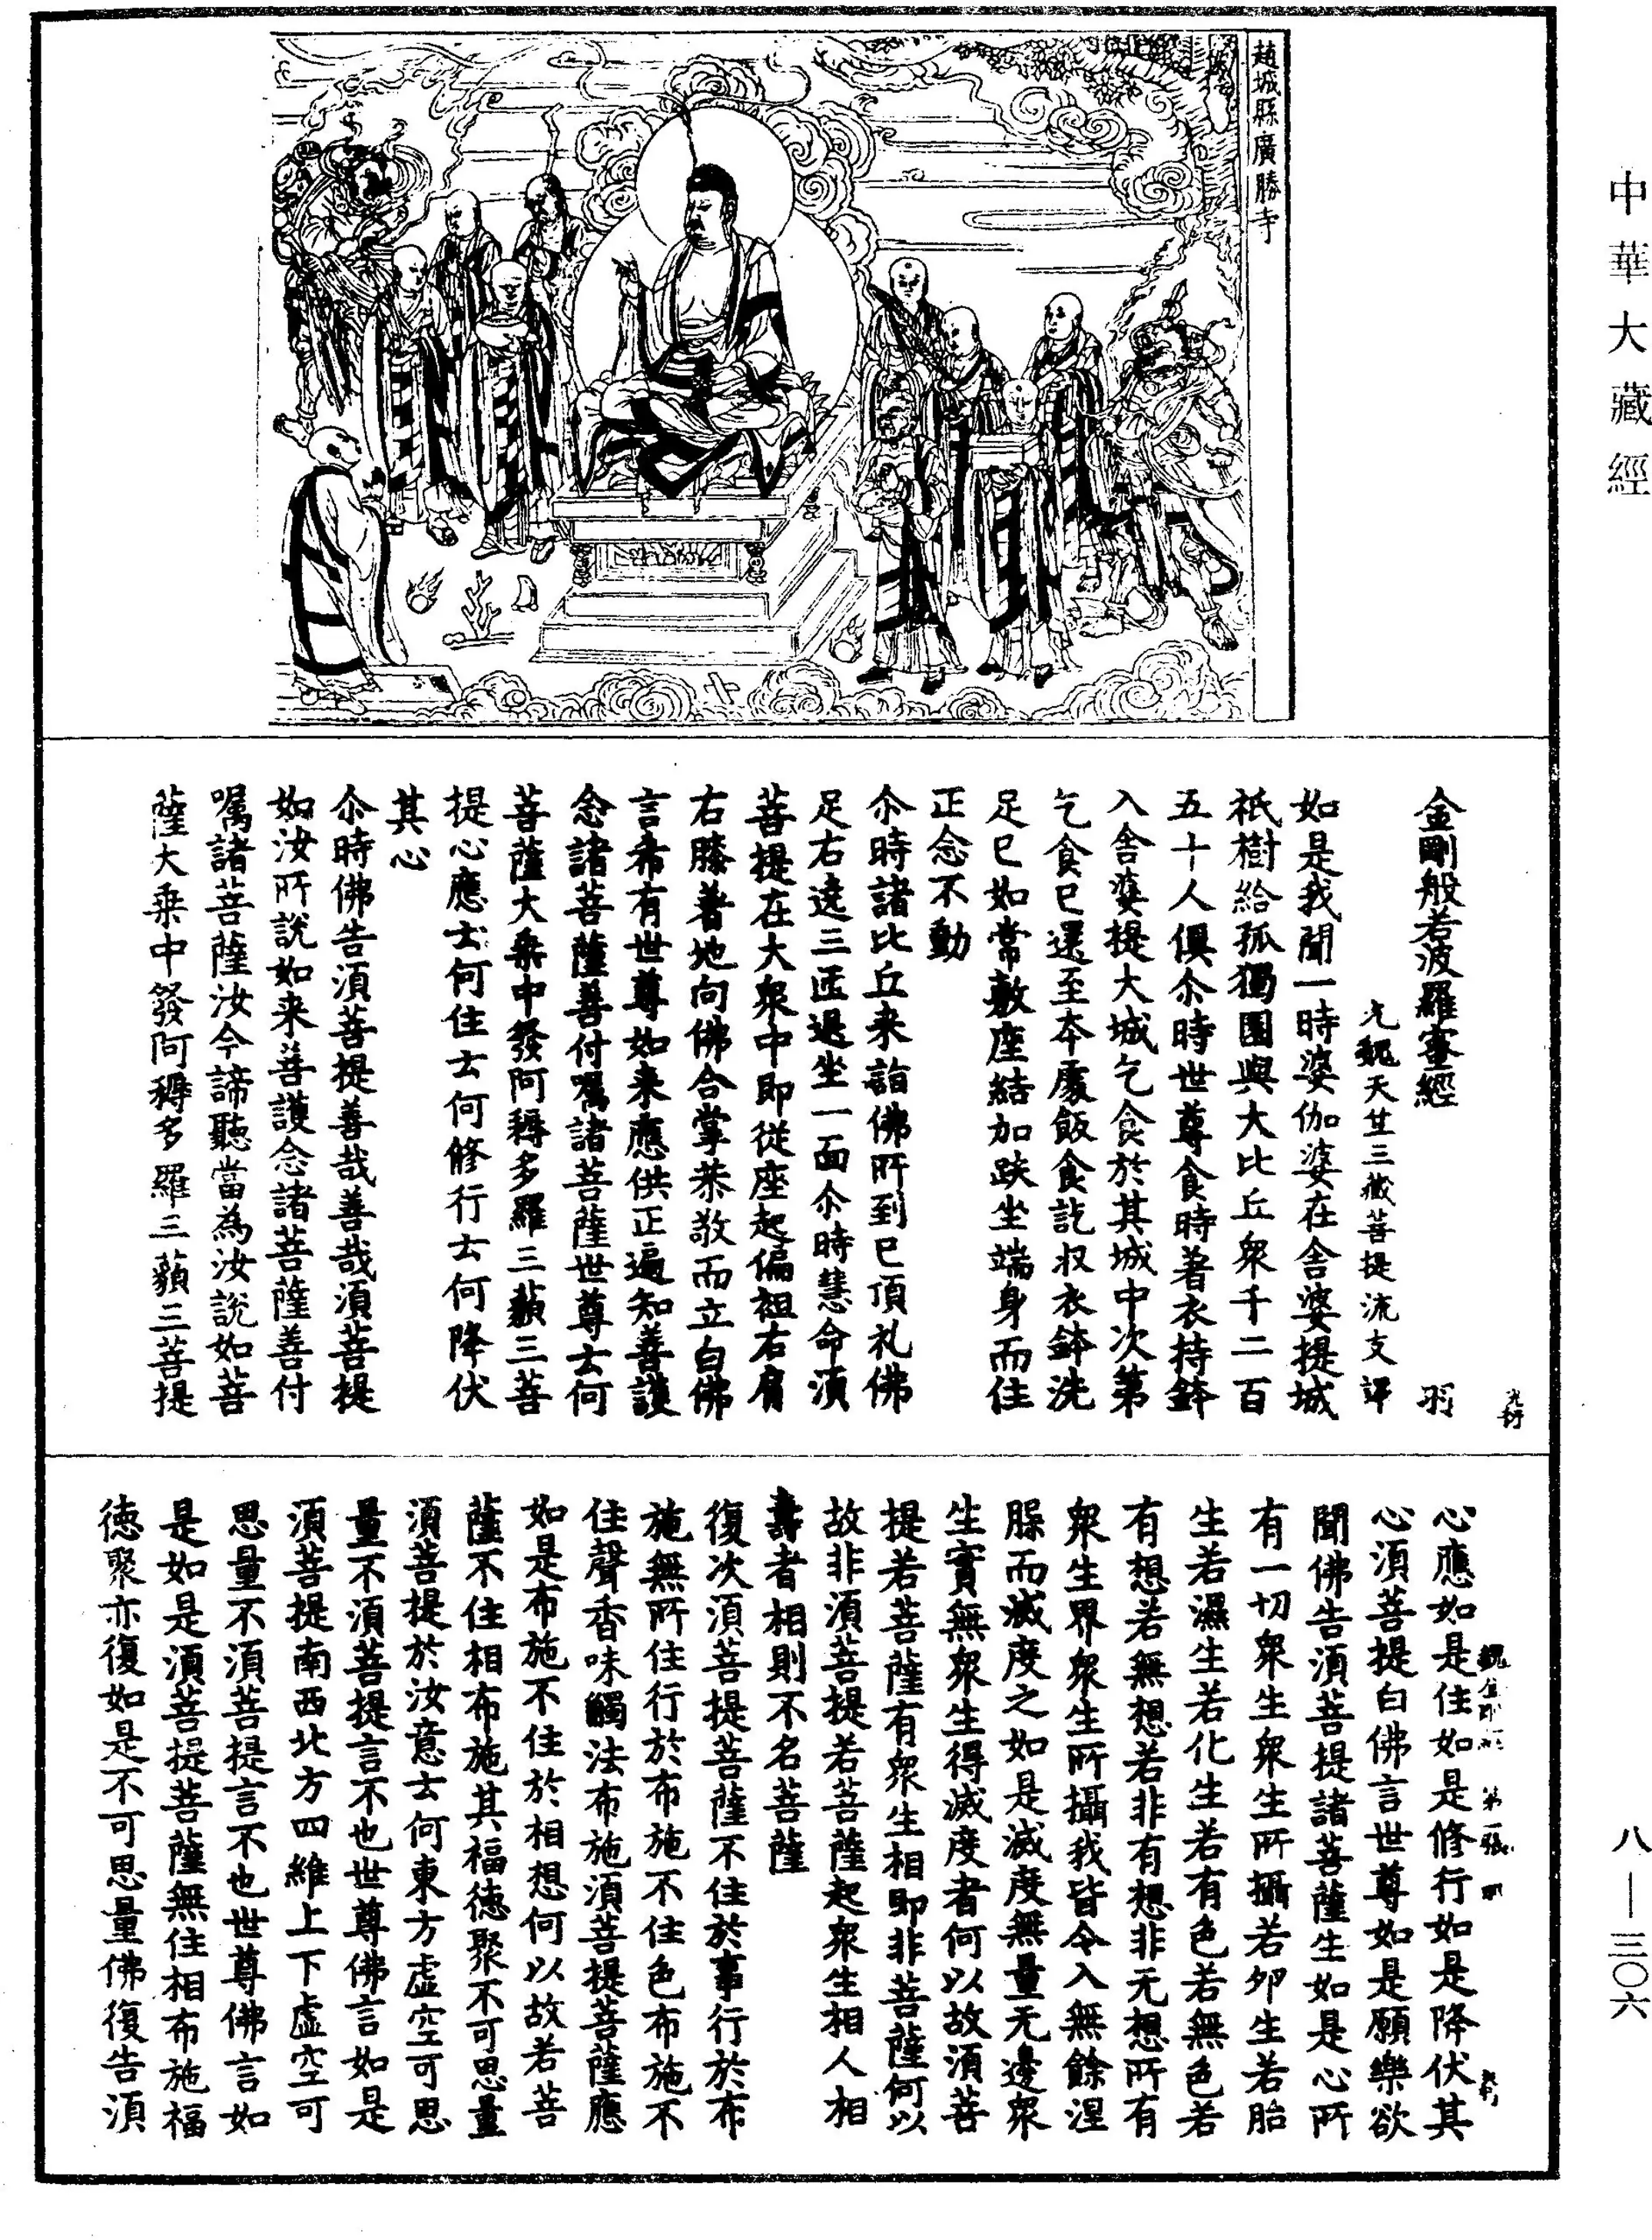 中華大藏經
趙城縣廣勝寺
金剛般若波羅蜜經 羽
元魏天竺三藏菩提流支譯
如是我聞一時婆伽婆在舍婆提城
祇樹給孤獨園與大比丘衆千二百
五十人俱尒時世尊食時著衣持鉢
入舍婆提大城乞食於其城中次第
乞食已還至本處飯食訖收衣鉢洗
足已如常敷座結加趺坐端身而住
正念不動
尒時諸比丘来詣佛所到已頂礼佛
足右遶三匝退坐一面尒時慧命湏
菩提在大衆中即從座起偏袒右肩
右膝著地向佛合掌恭敬而立白佛
言希有世尊如来應供正遍知善護
念諸菩薩善付囑諸菩薩世尊云何
菩薩大乗中發阿耨多羅三藐三菩
提心應云何住云何修行云何降伏
其心
尒時佛告湏菩提善哉善哉湏菩提
如汝所說如来善護念諸菩薩善付
囑諸菩薩汝今諦聽當為汝說如菩
薩大乗中發阿耨多羅三藐三菩提
心應如是住如是修行如是降伏其
心湏菩提白佛言世尊如是願樂欲
聞佛告湏菩提諸菩薩生如是心所
有一切衆生衆生所攝若卵生若胎
生若濕生若化生若有色若無色若
有想若無想若非有想非无想所有
衆生界衆生所攝我皆令入無餘涅
槃而滅度之如是滅度無量无邊衆
生實無衆生得滅度者何以故湏菩
提若菩薩有衆生相即非菩薩何以
故非湏菩提若菩薩起衆生相人相
壽者相則不名菩薩
復次湏菩提菩薩不住於事行於布
施無所住行於布施不住色布施不
住聲香味觸法布施湏菩提菩薩應
如是布施不住於相想何以故若菩
薩不住相布施其福德聚不可思量
湏菩提於汝意云何東方虛空可思
量不湏菩提言不也世尊佛言如是
湏菩提南西北方四維上下虛空可
思量不湏菩提言不也世尊佛言如
是如是湏菩提菩薩無住相布施福
德聚亦復如是不可思量佛復告湏
第一張
八—三〇六